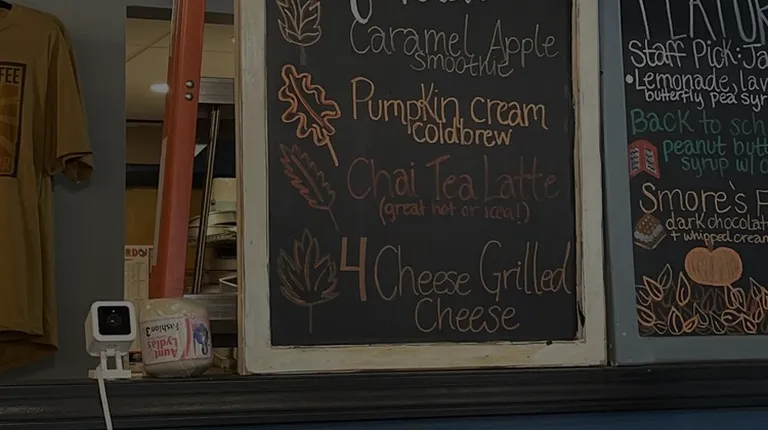 Caramel Apple
smoothie
Pumpkin cream
coldbrew
Chai Tea Latte
(great hot or iced!)
4 Cheese Grilled
Cheese
Staff Pick: Ja
• Lemonade, lav
butterfly pea syr
Back to sch
peanut butt
syrup w/
Smore's F
dark chocolat
+ whipped cream
Aunt
Lydia's
Fashion 3